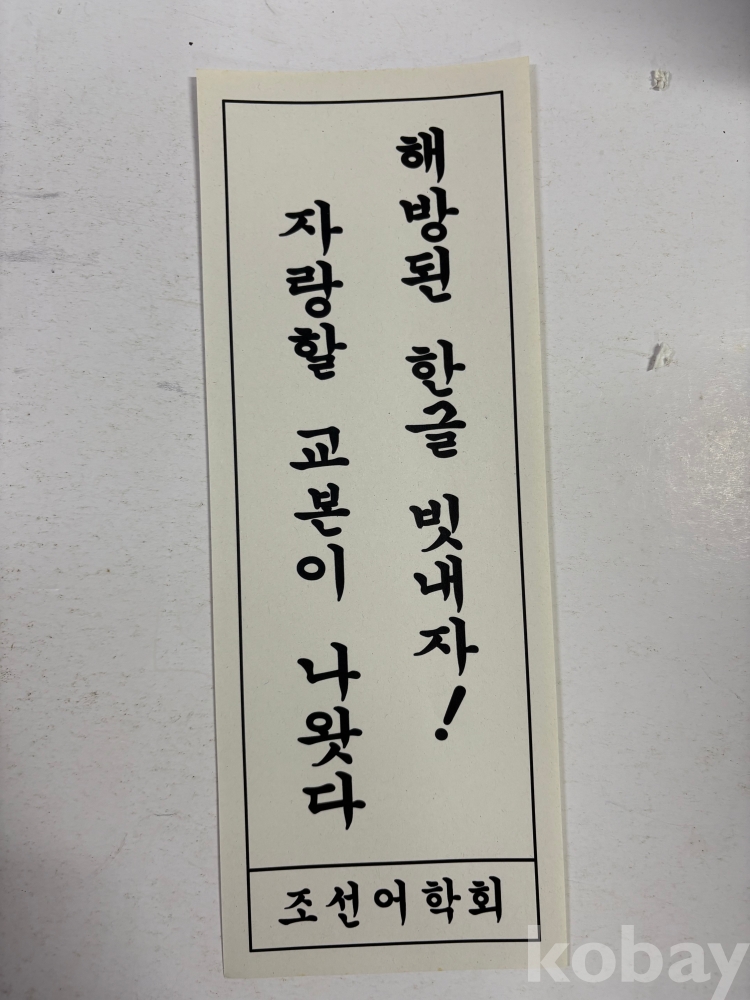 해방된 한글 빗내자!
자랑할 교본이 나왓다
조선어학회
kobay